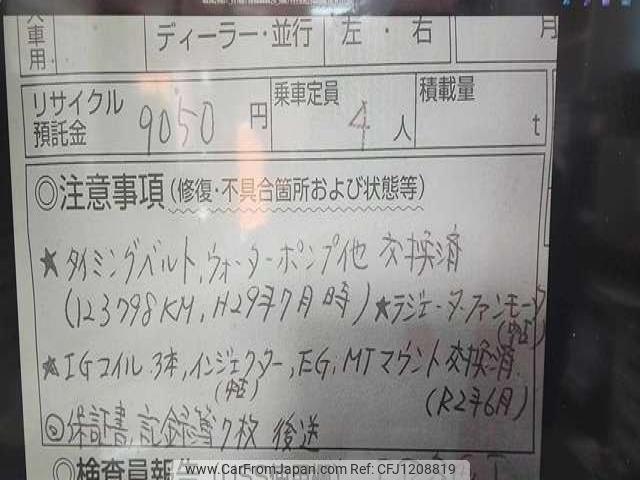 車用 ディーラー・並行 左・右 月
リサイクル預託金 9050 円 乗車定員 4 人 積載量 t
◎注意事項(修復・不具合箇所および状態等)
★タイミングベルト,ウォーターポンプ他 交換済
(123798KM,H29年7月時)★ラジエーターファンモータ
(中古)
★IGコイル3本,インジェクター,EG,MTマウント交換済
(中古) (R2年6月)
◎保証書,記録簿7枚 後送
◎検査員報告
www.CarFromJapan.com | CFJ1208819